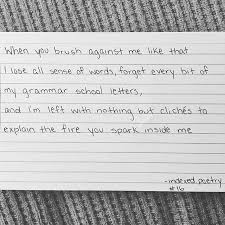 When you brush against me like that
I lose all sense of words, forget every bit of
my grammar school letters,
and i'm left with nothing but clichés to
explain the fire you spark inside me
-indexed poetry
#16